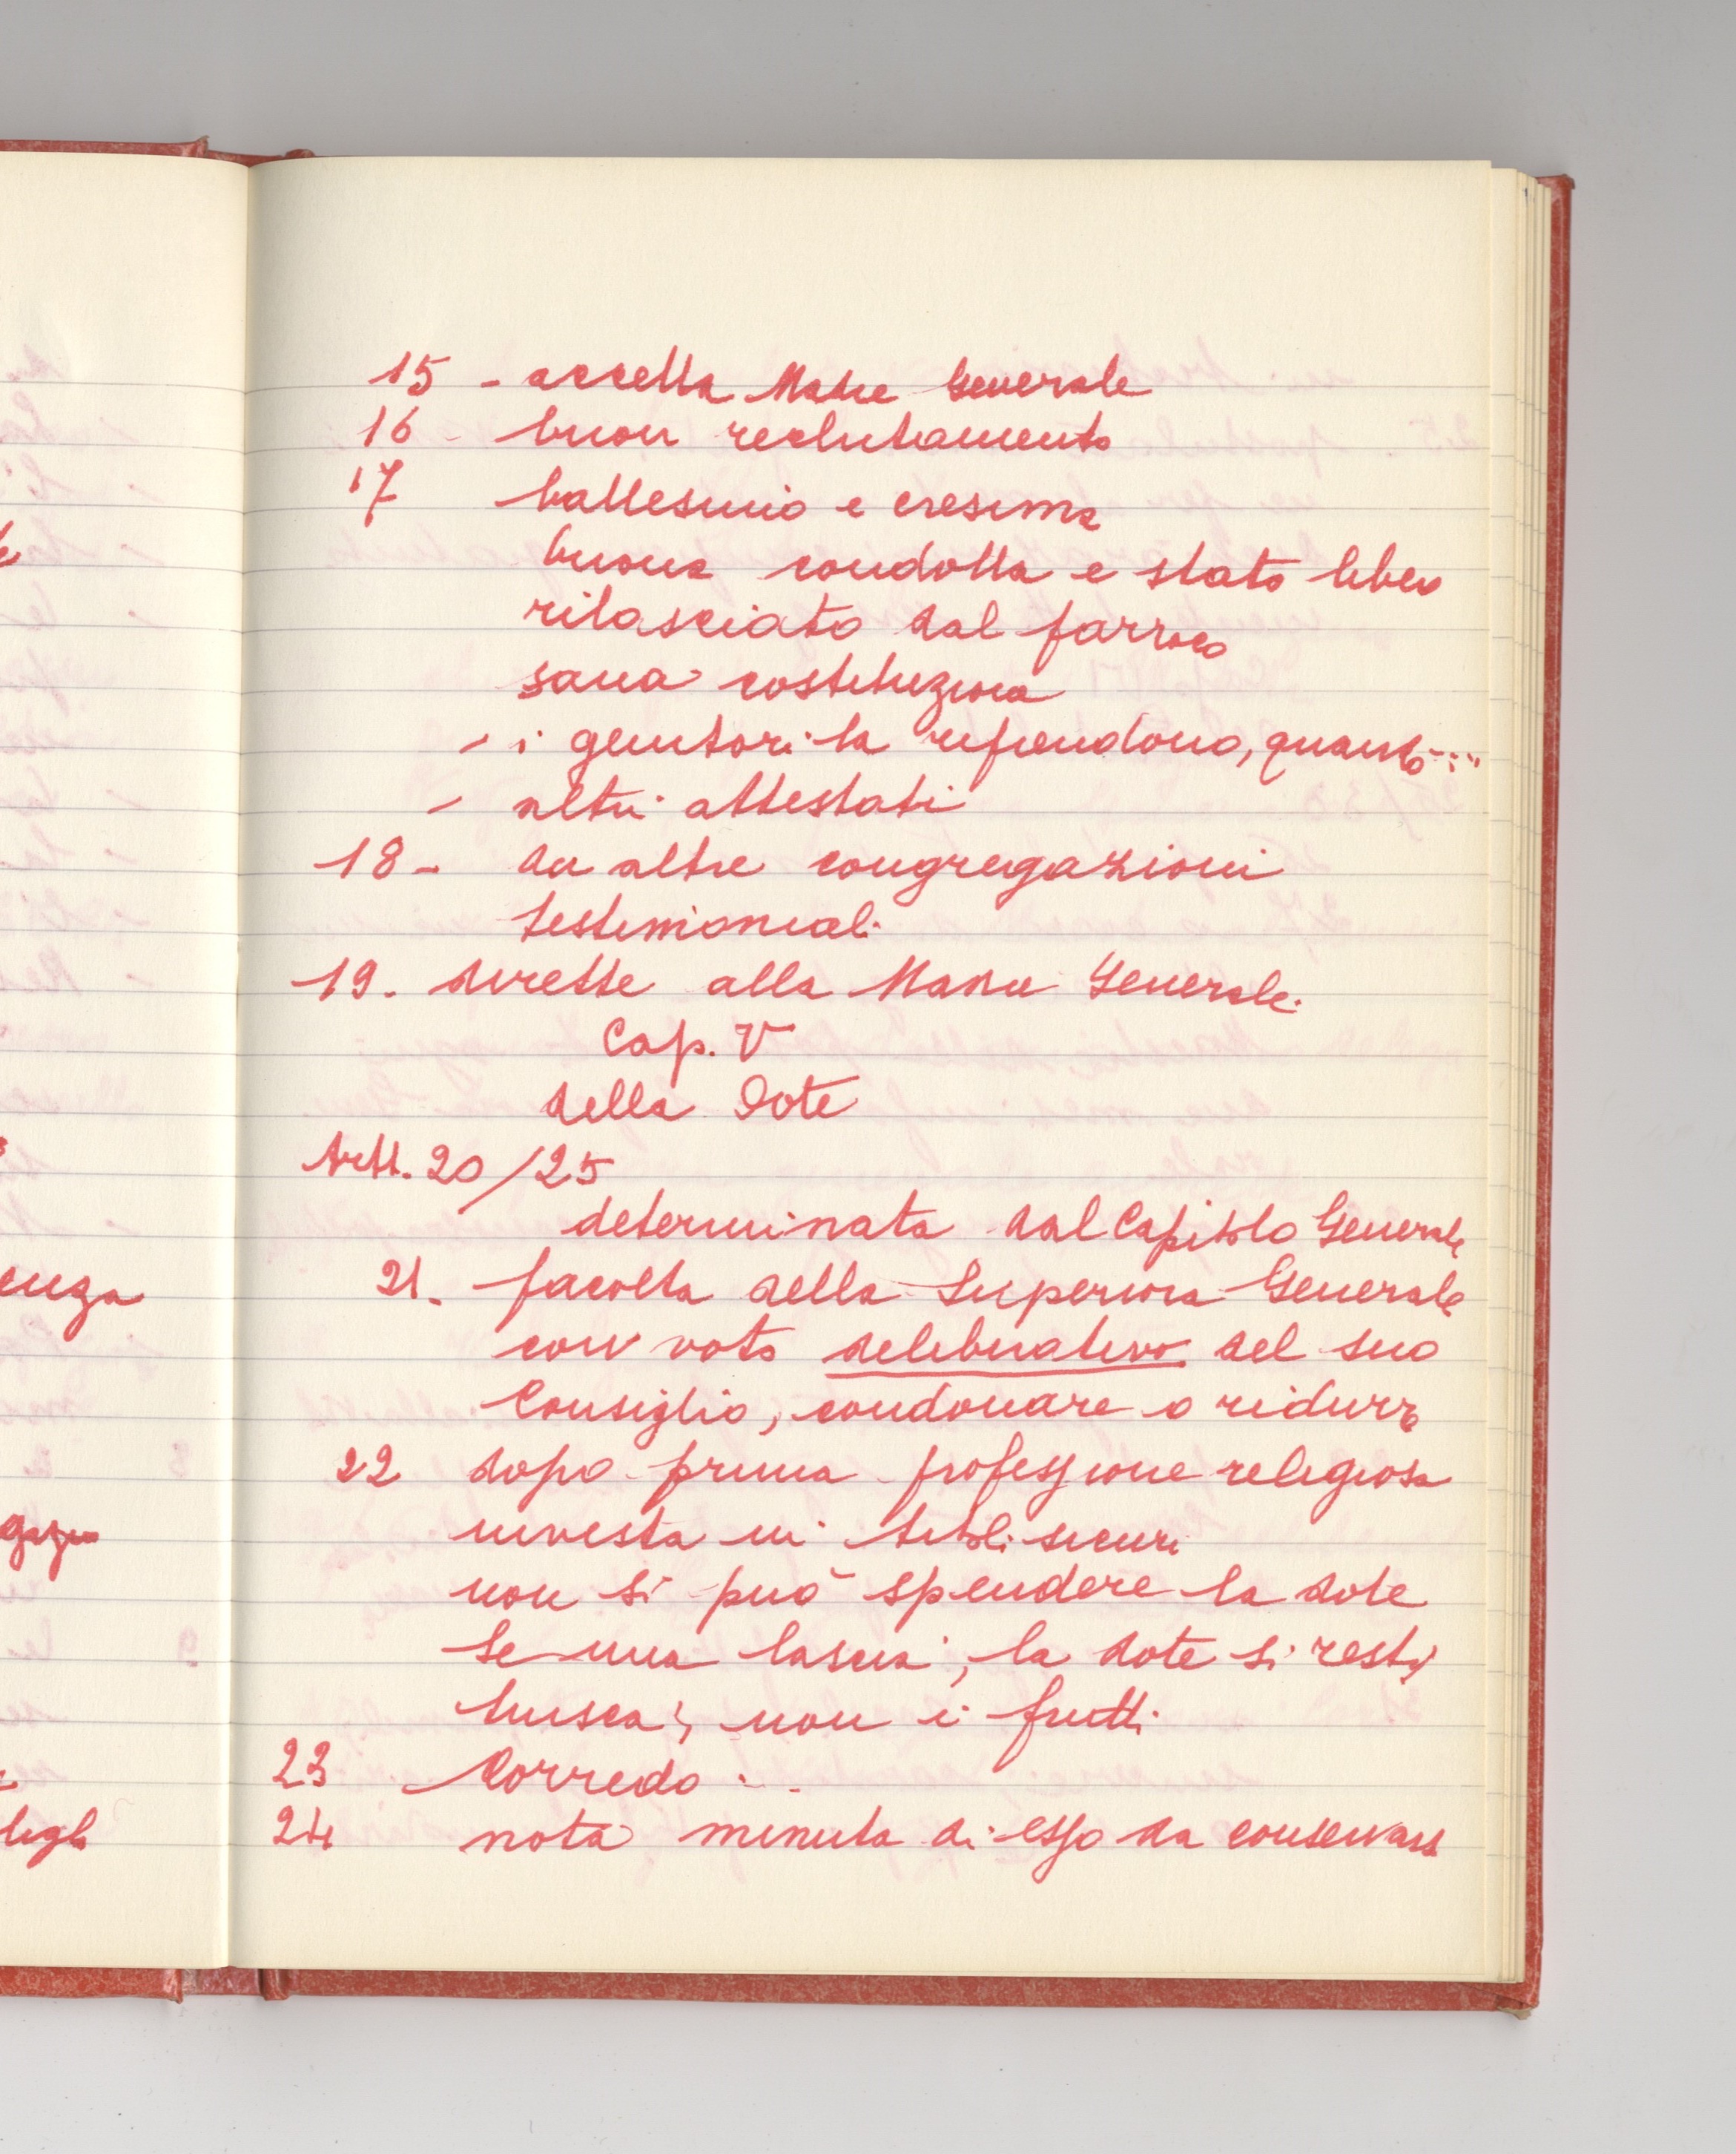 15 - accetta Madre Generale
16 - buon reclutamento
17 battesimo e cresima
buona condotta e stato libero
rilasciato dal parroco
sana costituzione
- i genitori la riprendono, quando...
- altri attestati
18 - da altre congregazioni
testimoniali
19. dirette alla Madre Generale.
Cap. V
della Dote
Artt. 20/25
determinata dal Capitolo Generale
21. facoltà della Superiora Generale
con voto deliberativo del suo
Consiglio, condonare o ridurre
22 dopo prima professione religiosa
investa in titoli sicuri
non si può spendere la dote
Se una lascia, la dote si resti
tuisca, non i frutti
23 - Corredo ...
24 nota minuta di esso da conservarsi